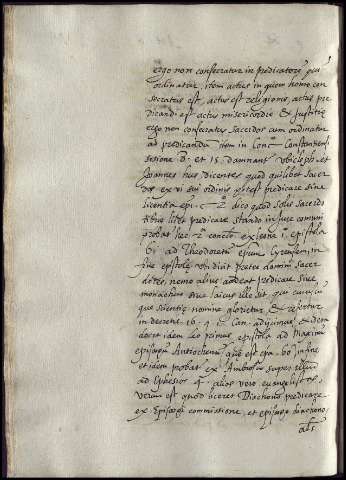 ergo non consecratur in predicatorē, cum
ordinatur, item actus in quem homo con
secratus est, actus est religionis, actus pre
dicandi est actus misericordie & Justitie
ergo non consecratus sacerdos cum ordinatur
ad predicandū item in Conc° Constantiensi
sessione 8. et 15. damnant' vbicleph, et
Joannes hus dicentes quod quilibet sacer
dos ex vi sui ordinis potest predicare sine
licentia epi. 2° dico quod solis sacerdo
tibus licet predicare stando in iure comuni
probat' hec 2ª conclo ex leone i. epistola
61 ad Theodoretum epum Cyrensem, in
fine epistole vbi dicit preter domini sacer
dotes, nemo alius audeat predicare siue
monachus siue laicus ille sit, qui cuiuscu
que scientie nomine glorietur, & refertur
in decreti 16. q. 1. Can. adijcimus, & idem
docet idem leo primus epistola ad Maximu
episcopū Antiochenū, que est epa. 60 in fine
et idem probat ex Ambrosius super illud
ad Ephesios 4. alios vero euangelistas,
verum est quod liceret Diachono predicare
ex Episcopi commissione, et episcopo diachono